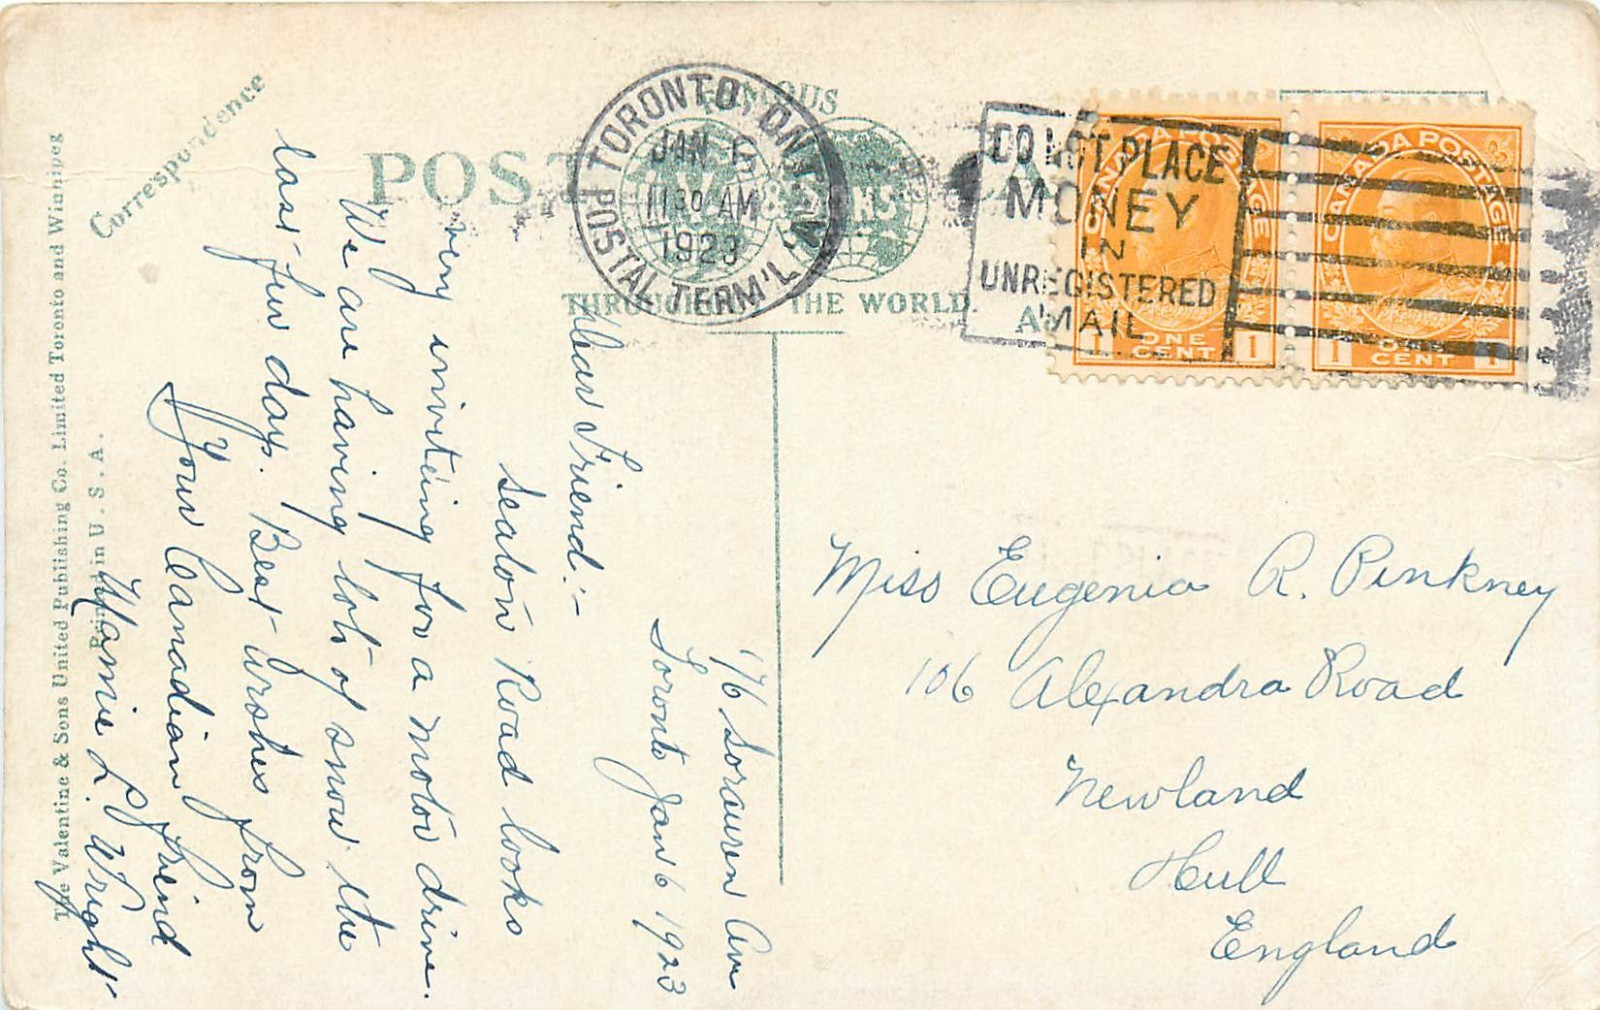 Correspondence
POST CA
FAMOUS
& SONS
THROUGHOUT THE WORLD.
TORONTO, ONT.
JAN 6
11 30 AM
1923
POSTAL TERM'L "A"
DO NOT PLACE
MONEY
IN
UNREGISTERED
MAIL
CANADA POSTAGE
1 ONE CENT 1
CANADA POSTAGE
1 ONE CENT 1
176 Sorauren Ave
Toronto Jan 6 1923
Dear Friend:-
Seaton Road looks
very inviteing for a motor drive.
We are having lots of snow the
last few days. Best wishes from
Your Canadian friend
Mamie L. Wright
Printed in U.S.A.
The Valentine & Sons United Publishing Co. Limited Toronto and Winnipeg
Miss Eugenia R. Pinkney
106 Alexandra Road
Newland
Hull
England